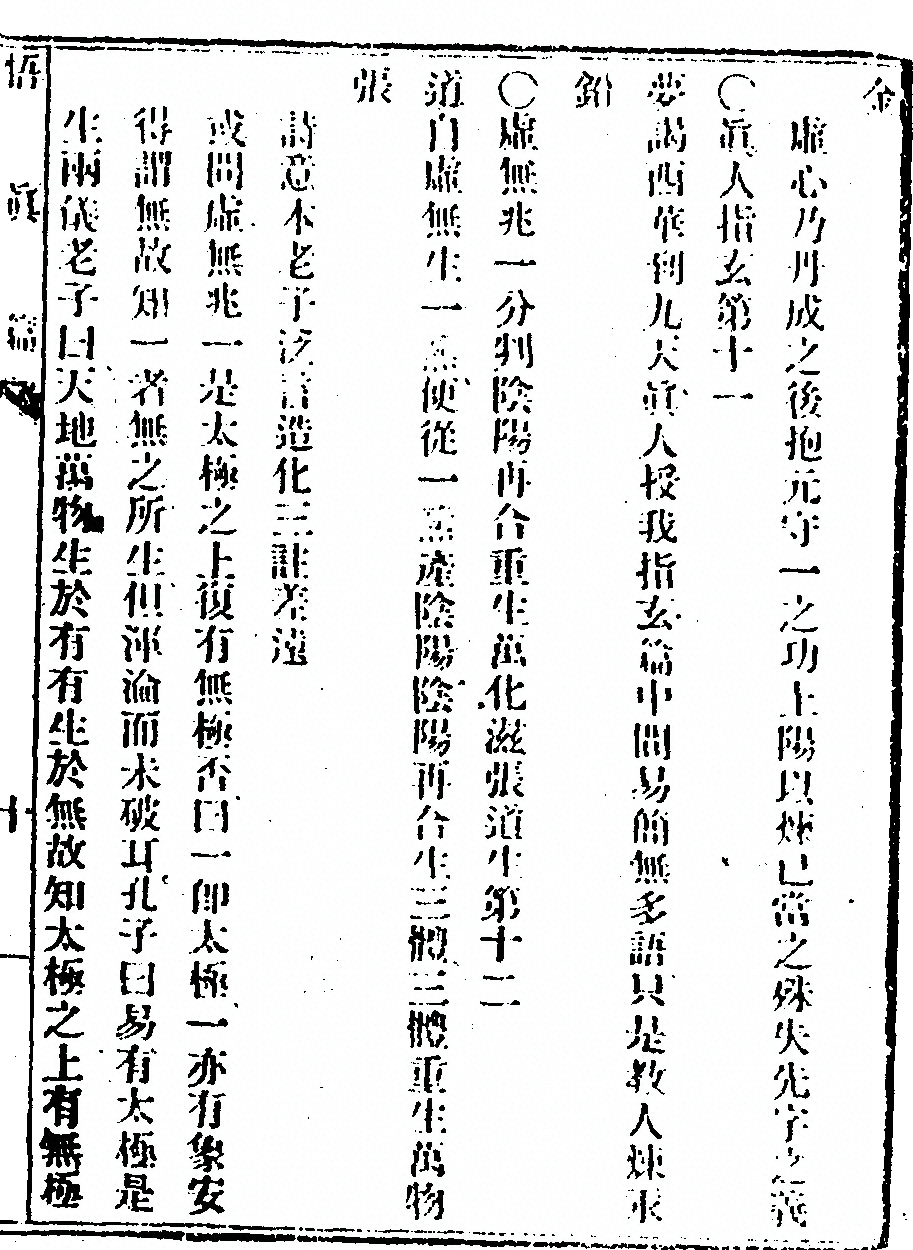 金
虛心乃丹成之後抱元守一之功上陽以煉己當之殊失先字之義
○眞人指玄第十一
夢謁西華到九天眞人授我指玄篇中間易簡無多語只是教人煉汞
鉛
○虛無兆一分判陰陽再合重生萬化滋張道生第十二
道自虛無生一炁便從一炁產陰陽陰陽再合生三體三體重生萬物
張
詩意本老子泛言造化三註差遠
或問虛無兆一是太極之上復有無極否曰一卽太極一亦有象安
得謂無故知一者無之所生但渾淪而未破耳孔子曰易有太極是
生兩儀老子曰天地萬物生於有有生於無故知太極之上有無極
悟眞篇
十